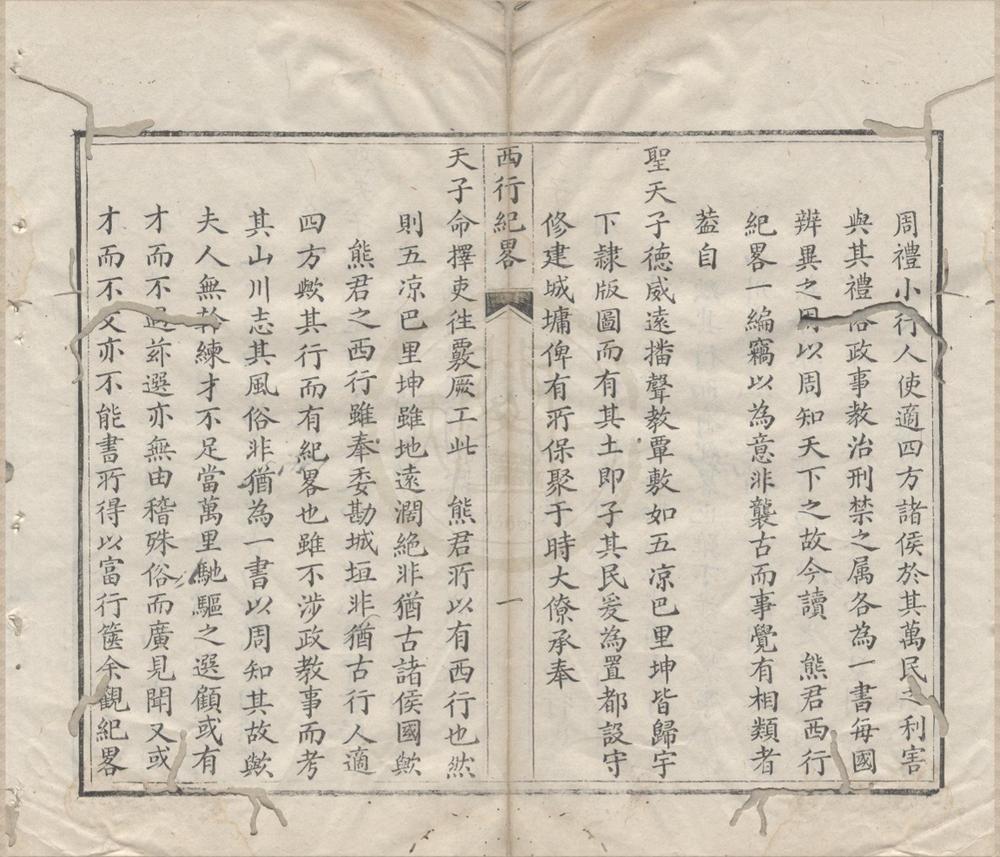 周禮小行人使適四方諸侯於其萬民之利害
與其禮俗政事教治刑禁之属各為一書每國
辨異之用以周知天下之故今讀　熊君西行
紀畧一編竊以為意非襲古而事覺有相類者
葢自
聖天子德威遠播聲教覃敷如五凉巴里坤皆歸宇
下隸版圖而有其土即子其民爰為置都設守
修建城墉俾有所保聚于時大僚承奉
西行紀畧　一
天子命擇吏徃覈厥工此　熊君所以有西行也然
則五凉巴里坤雖地遠濶絕非猶古諸侯國歟
熊君之西行雖奉委勘城垣非猶古行人適
四方歟其行而有紀畧也雖不涉政教事而考
其山川志其風俗非猶為一書以周知其故歟
夫人無幹練才不足當萬里馳驅之選顧或有
才而不遇茲選亦無由稽殊俗而廣見聞又或
才而不文亦不能書所得以富行篋余觀紀畧